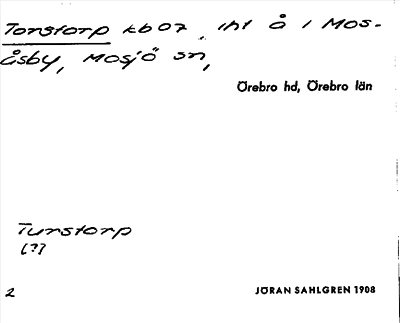 Torstorp kb07, iht å i Mos-
åsby, Mosjö sn,
Örebro hd, Örebro län
Turstorp
(?)
2
JÖRAN SAHLGREN 1908